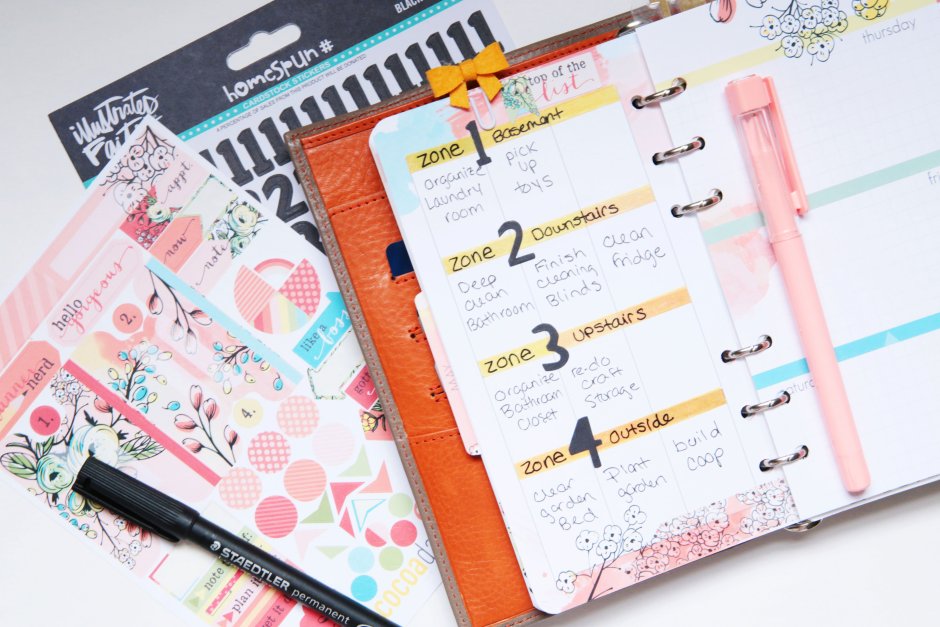 BLACK
homespun #
CARDSTOCK STICKERS
A PERCENTAGE OF SALES FROM THIS PRODUCT WILL BE DONATED
illustrated
Faith
appt.
now
note
hello
gorgeous
2.
like a
nerd
1.
4.
note
plan it
cocoa
STAEDTLER permanent
top of the
list
zone 1 Basement
organize
Laundry
room
pick
up
toys
zone 2 Downstairs
Deep
clean
Bathroom
Finish
cleaning
Blinds
clean
fridge
zone 3 upstairs
organize
Bathroom
closet
re-do
craft
storage
zone 4 outside
clear
garden
Bed
Plant
garden
build
coop
thursday